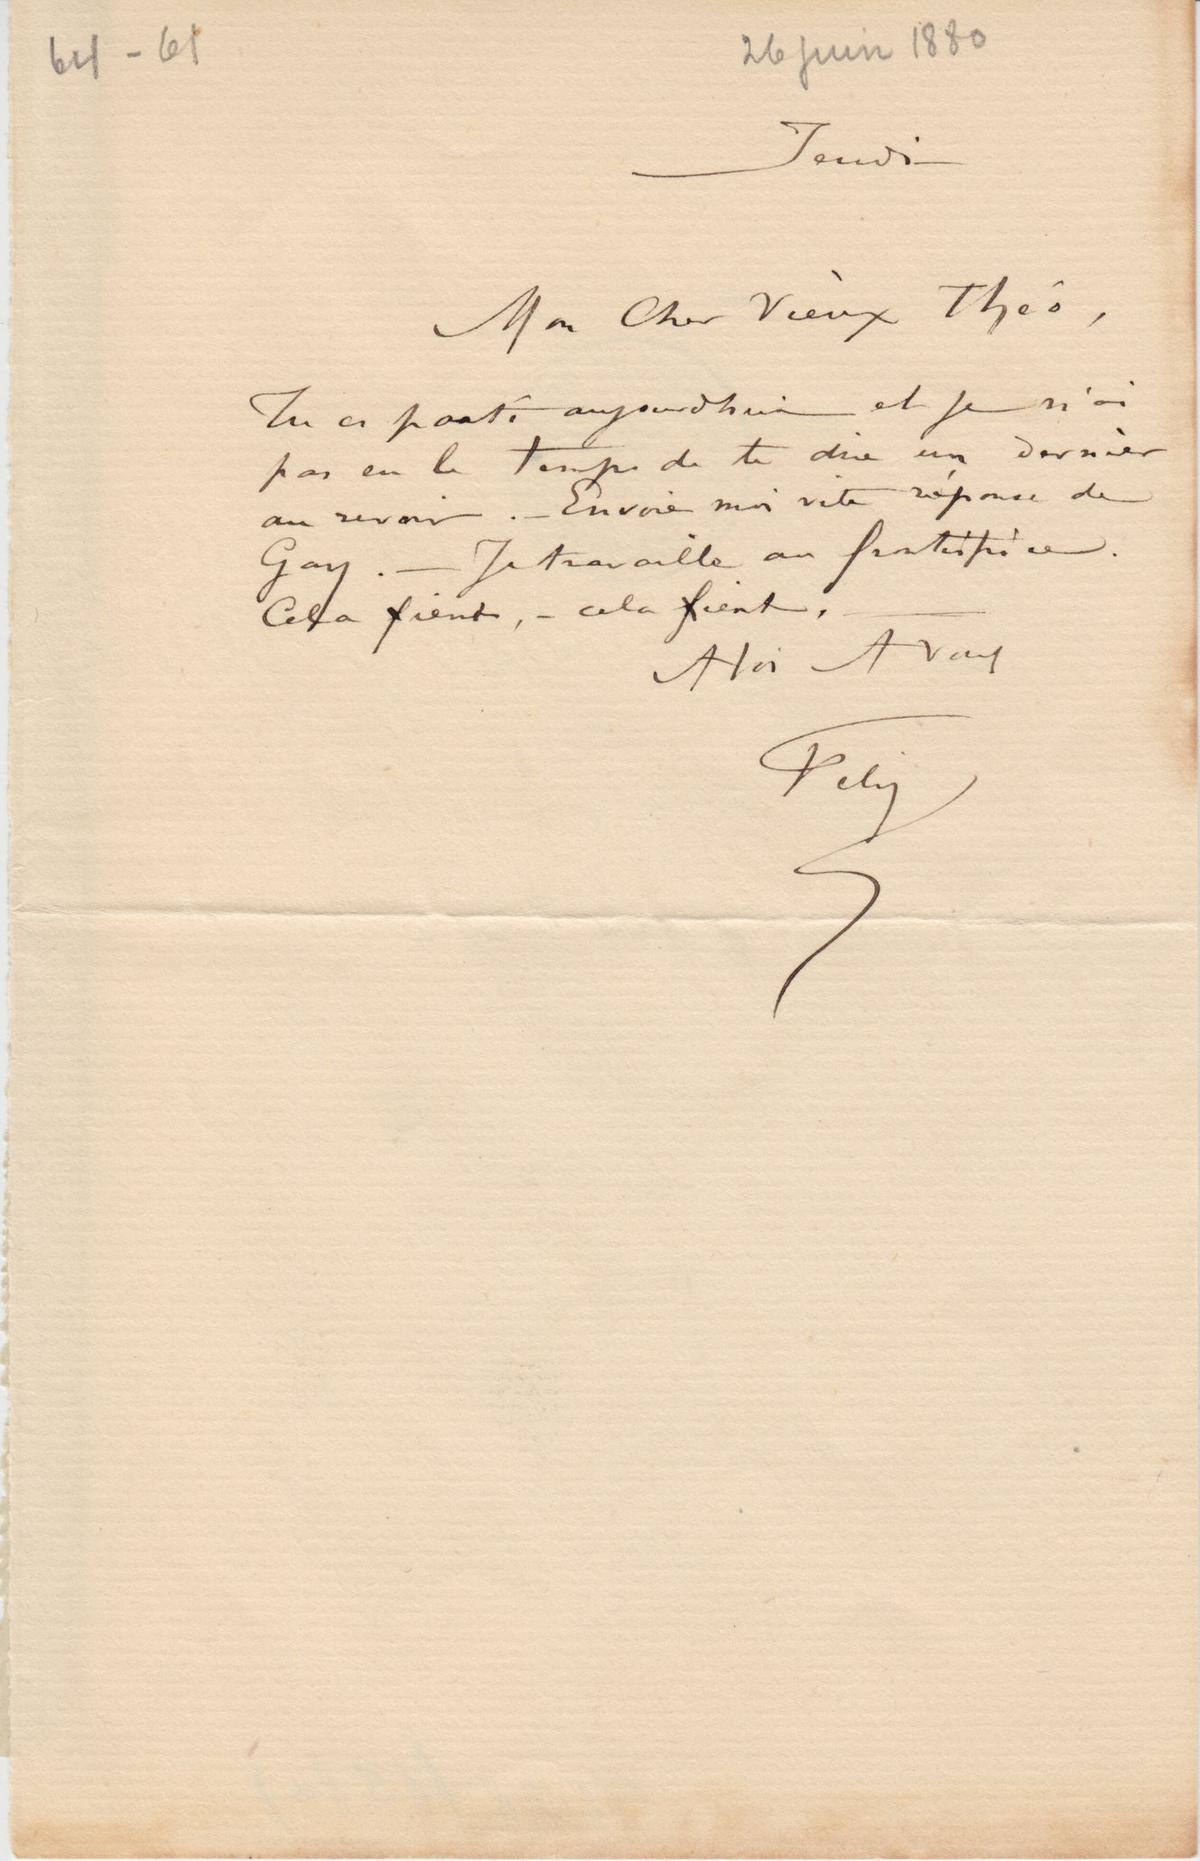 64 - 61
26 juin 1880
Jeudi
Mon Cher Vieux Théo,
Tu es parti aujourdhui et je n'ai
pas eu le temps de te dire un dernier
au revoir. — Envoie moi vite réponse de
Gay. — Je travaille au frontispice.
Cela vient, - cela vient.
A toi A vous
Fély